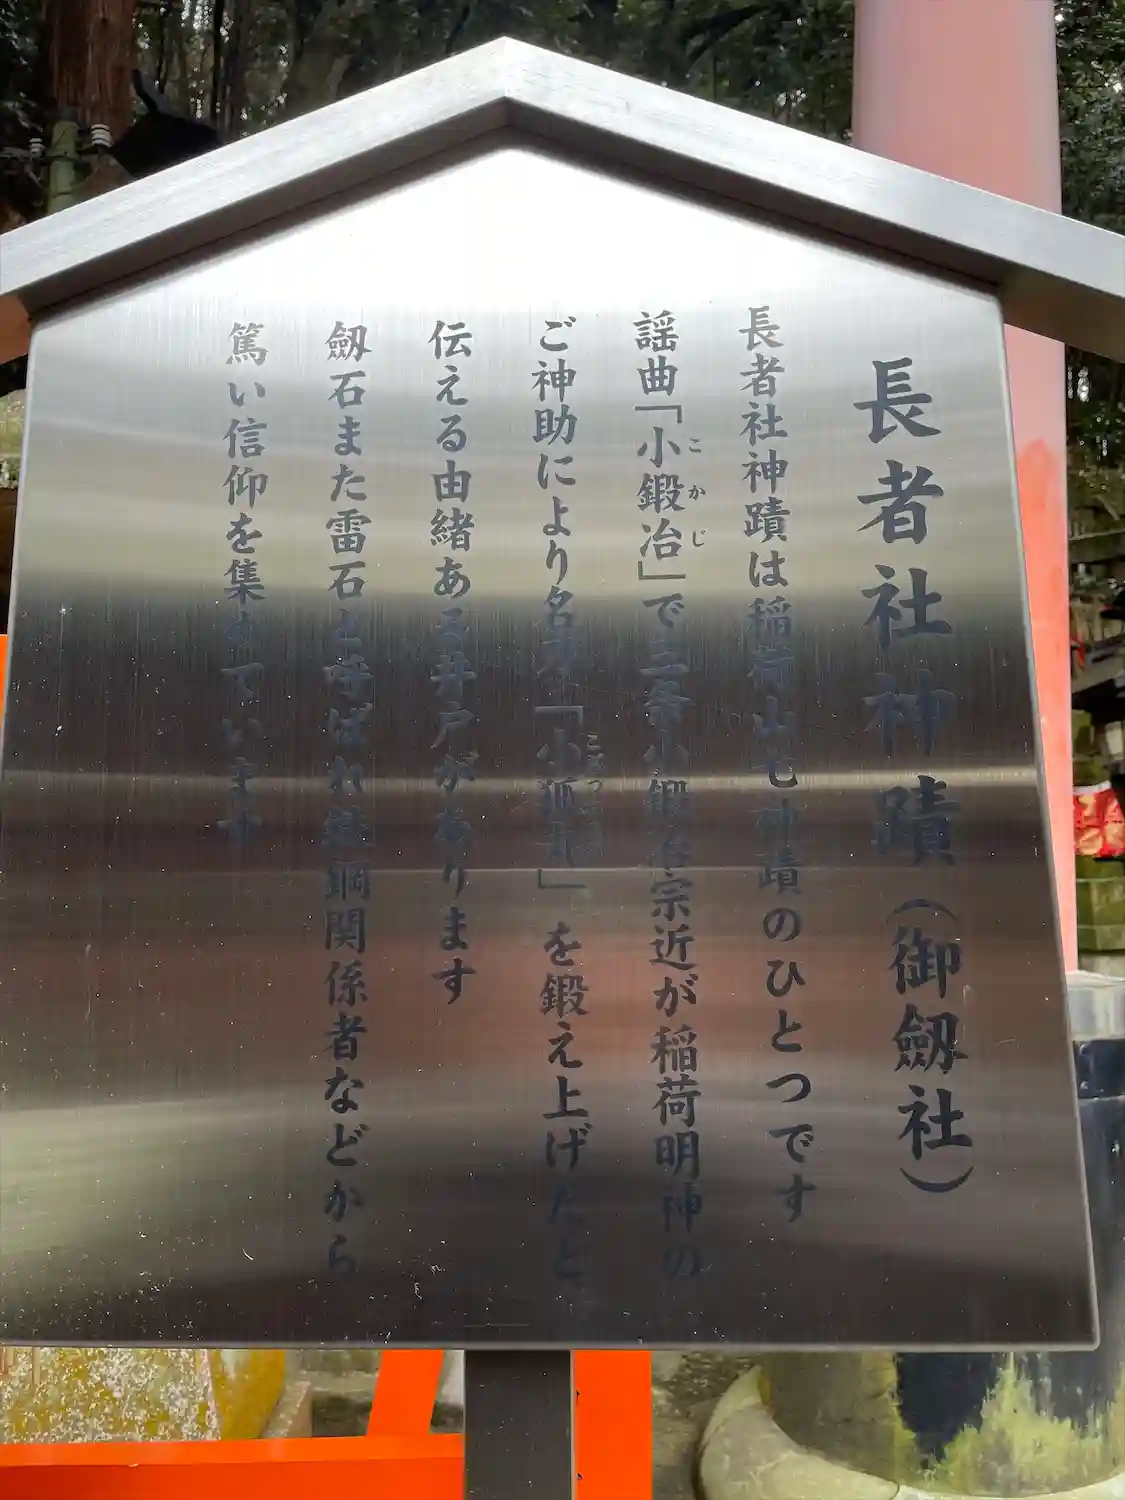 長者社神蹟（御劔社）
長者社神蹟は稲荷山七神蹟のひとつです
謡曲「小鍛冶」で三条小鍛冶宗近が稲荷明神の
こかじ
ご神助により名刀「小狐丸」を鍛え上げたと
伝える由緒ある井戸があります
劔石また雷石と呼ばれ鉄鋼関係者などから
篤い信仰を集めています